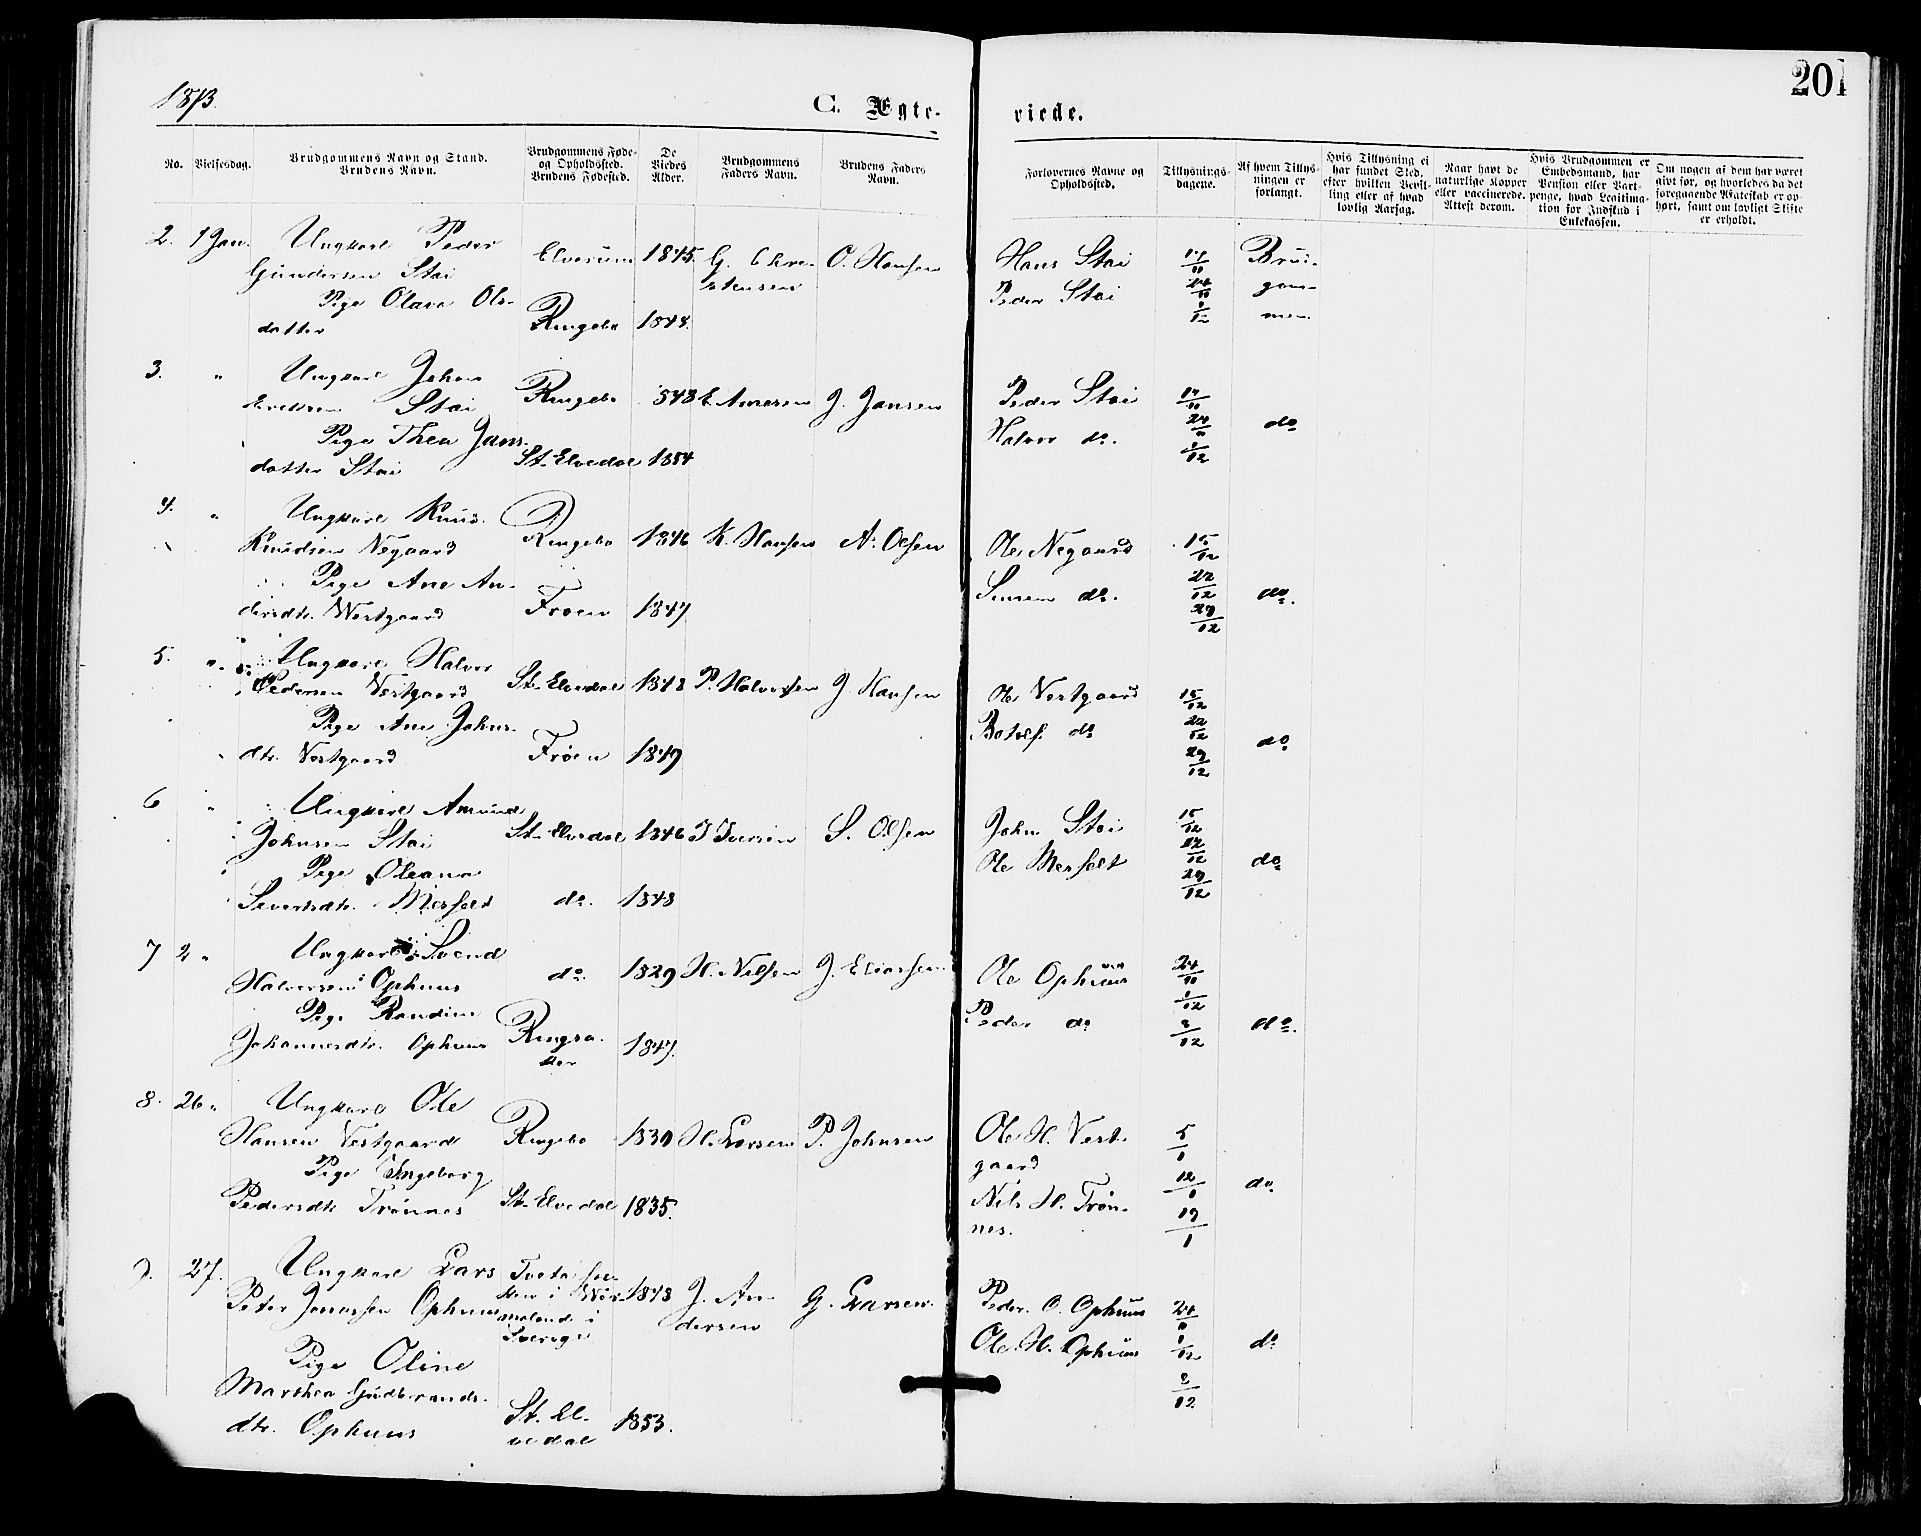 1873.
C. Ægte-
viede.
201
No.
Vielsesdag.
Brudgommens Navn og Stand.
Brudens Navn.
Brudgommens Føde-
og Opholdssted.
Brudens Fødested.
De
Viedes
Alder.
Brudgommens
Faders Navn.
Brudens Faders
Navn.
Forlovernes Navne og
Opholdssted.
Tillysnings-
dagene.
Af hvem Tillys-
ningen er
forlangt.
Hvis Tillysning ei
har fundet Sted,
efter hvilken Bevil-
ling eller af hvad
lovlig Aarsag.
Naar havt de
naturlige Kopper
eller vaccinerede.
Attest derom.
Hvis Brudgommen er
Embedsmand, har
Pension eller Vart-
penge, hvad Legitima-
tion for Indskud i
Enkekassen.
Om nogen af dem har været
givt før, og hvorledes da det
foregaaende Ægteskab er op-
hørt, samt om lovligt Skifte
er erholdt.
2. 1 Jan. Ungkarl Peder
Gundersen Stai
Elverum 1845. G. Chri-
stensen
O. Hansen
Pige Olava Ols-
datter
Ringebo 1844.
Hans Stai
Peder Stai
17/11
24/11
1/12
Brud-
gom-
men
3. " Ungkarl Johan
Eriksen Stai
Ringebo 1848 E. Amersen J. Jansen
Pige Thea Jans-
datter Stai
St-Elvedal 1854
Peder Stai
Halvor do.
17/11
24/11
1/12
do
4. " Ungkarl Knud
Knudsen Negaard
Ringebo 1846 K. Hansen A. Olsen
Pige Ane An-
dersdtr. Westgaard
Froen 1847
Ole Negaard
Simen do.
15/12
22/12
29/12
do.
5. " Ungkarl Halvor
Pedersen Vestgaard
St-Elvedal 1848 P. Halvorsen J. Hansen
Pige Ane Johns-
dtr. Vestgaard
Frøen 1849
Ole Vestgaard
Botolf do
15/12
22/12
29/12
do
6 " Ungkarl Amund
Johnsen Stai
St-Elvedal 1846 J Iversen S. Olsen
Pige Oleana
Sivertsdtr. Messelt
do. 1848
John Stai
Ole Messelt
15/12
22/12
29/12
do
7 2 " Ungkarl Svend
Halvorsen Ophuus
do. 1829 H. Nilsen J. Eliassen
Pige Randine
Johannesdtr. Ophuus
Ringsa-
ker
1847.
Ole Ophuus
Peder do
24/11
1/12
8/12
do.
8. 26 " Ungkarl Ole
Hansen Vestgaard
Ringebo 1830 H. Larsen P. Johnsen
Pige Ingeborg
Pedersdtr Trønnes
St-Elvedal 1835.
Ole H. Vest-
gaard
Nils H. Trøn-
nes.
5/1
12/1
19/1
do
9. 27. Ungkarl Lars
Peter Jonassen Ophuus
Tveta
i Wer-
meland i
Sverige
1848 J. An-
dersen
G. Larsen.
Pige Oline
Marthea Gudbrands-
dtr. Ophuus
St. El-
vedal
1853.
Peder O. Ophuus
Ole H. Ophuus
24/11
1/12
8/12
do